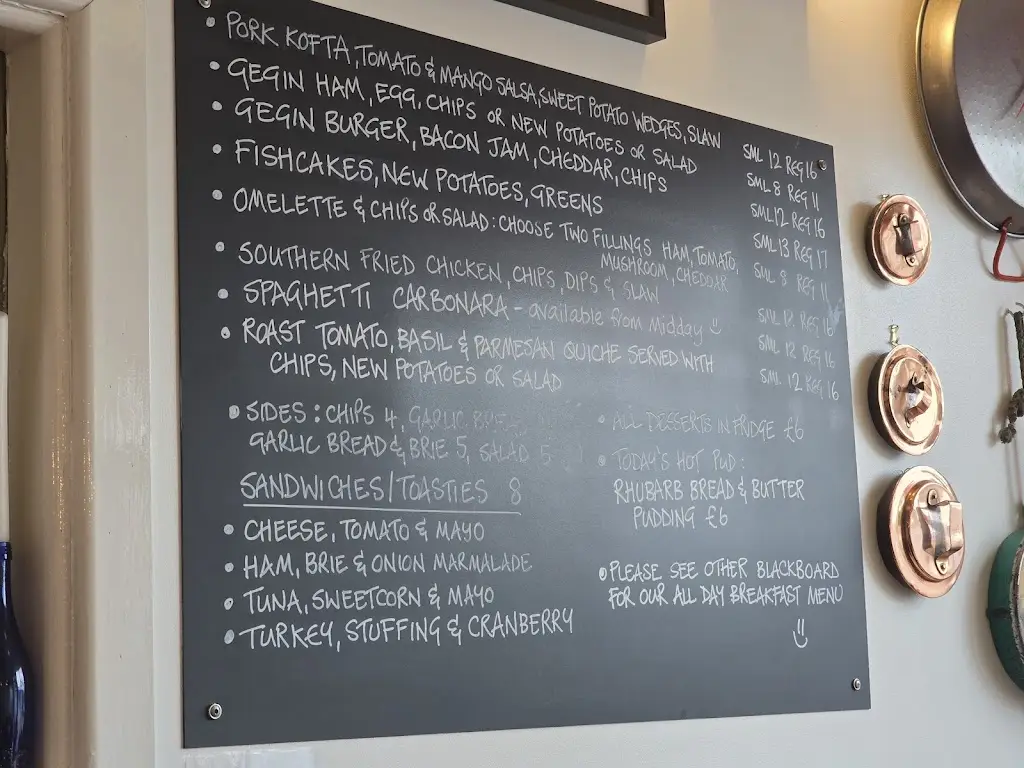 • PORK KOFTA, TOMATO & MANGO SALSA, SWEET POTATO WEDGES, SLAW SML 12 REG 16
• GEGIN HAM, EGG, CHIPS OR NEW POTATOES OR SALAD SML 8 REG 11
• GEGIN BURGER, BACON JAM, CHEDDAR, CHIPS SML 12 REG 16
• FISHCAKES, NEW POTATOES, GREENS SML 13 REG 17
• OMELETTE & CHIPS OR SALAD: CHOOSE TWO FILLINGS HAM, TOMATO, SML 8 REG 11
MUSHROOM, CHEDDAR
• SOUTHERN FRIED CHICKEN, CHIPS, DIPS & SLAW SML 12 REG 16
• SPAGHETTI CARBONARA - available from midday SML 12 REG 16
• ROAST TOMATO, BASIL & PARMESAN QUICHE SERVED WITH SML 12 REG 16
CHIPS, NEW POTATOES OR SALAD
• SIDES: CHIPS 4, GARLIC
GARLIC BREAD & BRIE 5, SALAD 5
SANDWICHES/TOASTIES 8
• CHEESE, TOMATO & MAYO
• HAM, BRIE & ONION MARMALADE
• TUNA, SWEETCORN & MAYO
• TURKEY, STUFFING & CRANBERRY
• ALL DESSERTS IN FRIDGE £6
• TODAY'S HOT PUD:
RHUBARB BREAD & BUTTER
PUDDING £6
• PLEASE SEE OTHER BLACKBOARD
FOR OUR ALL DAY BREAKFAST MENU